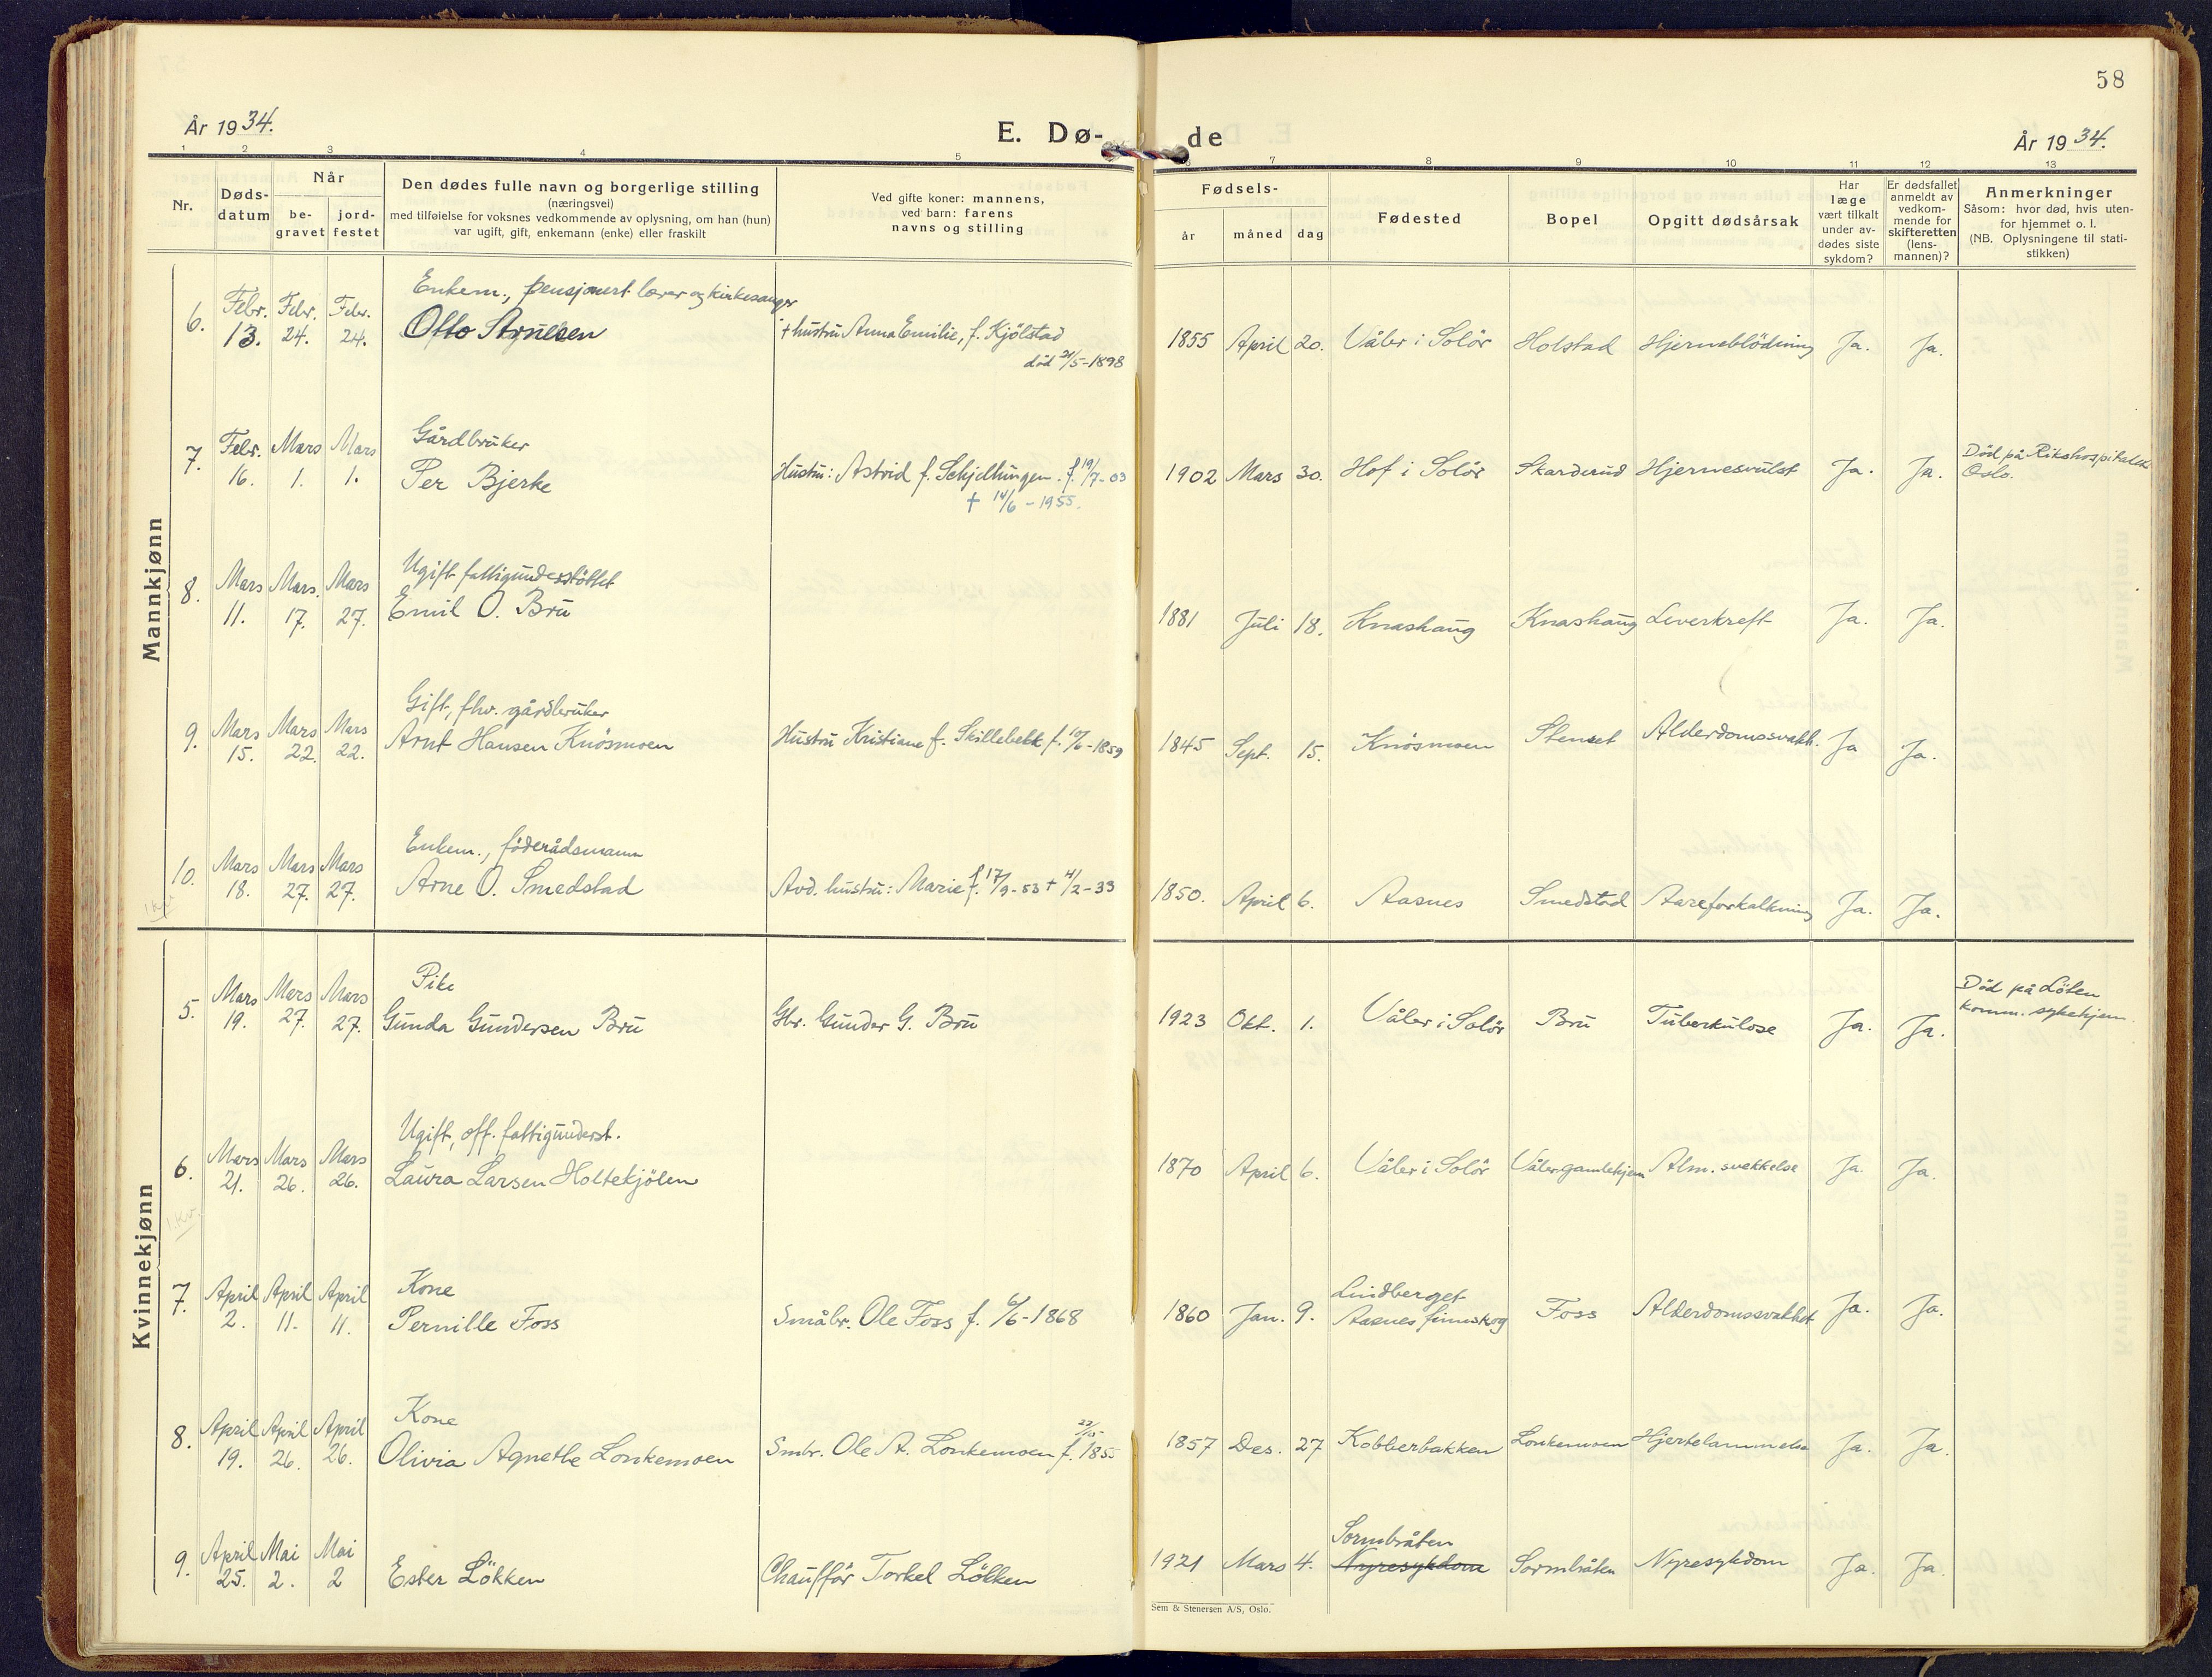 58
År 1934.
E. Dø-
de
År 1934.
1 2 3 4 5 6 7 8 9 10 11 12 13
Nr.
Døds-
datum
Når
be-
gravet
jord-
festet
Den dødes fulle navn og borgerlige stilling
(næringsvei)
med tilføielse for voksnes vedkommende av oplysning, om han (hun)
var ugift, gift, enkemann (enke) eller fraskilt
Ved gifte koner: mannens,
ved barn: farens
navns og stilling
Fødsels-
år
måned
dag
Fødested
Bopel
Opgitt dødsårsak
Har
læge
vært tilkalt
under av-
dødes siste
sykdom?
Er dødsfallet
anmeldt av
vedkom-
mende for
skifteretten
(lens-
mannen)?
Anmerkninger
Såsom: hvor død, hvis uten-
for hjemmet o. l.
(NB. Oplysningene til stati-
stikken)
Mannkjønn
Enkem., pensjonert lærer og kirkesanger
6. Febr. 13. Febr. 24. Febr. 24. Otto
+ hustru Anna Emilie, f. Kjölstad
død 21/5-1898
1855 April 20. Våler i Solör Holstad Hjerneblödning Ja. Ja.
Gårdbruker
7. Febr. 16. Mars 1. Mars 1. Per Bjerke
Hustru: Astrid f. Schjellungen. f. 19/7-03
† 14/6-1955.
1902 Mars 30. Hof i Solör Skarderud Hjernesvulst Ja. Ja.
Död på Rikshospitalet
Oslo.
Ugift fattigunderstöttet
8. Mars 11. Mars. 17. Mars 27. Emil O. Bru
1881 Juli 18. Knashaug Knashaug Leverkreft Ja. Ja.
Gift, fhv. gårdbruker
9. Mars 15. Mars 22. Mars 22. Arnt Hansen Knösmoen
Hustru Kristiane f. Skillebekk f. 10/6-1859
1845 Sept. 15. Knösmoen Stenset Alderdomssvakh. Ja Ja.
Enkem., föderådsmann
10. Mars 18. Mars 27. Mars 27. Arne O. Smedstad
Avd. hustru: Marie f. 17/9-53 + 4/2-33
1850. April 6. Aasnes Smedstad Aareforkalkning Ja. Ja.
Kvinnekjønn
Pike
5. Mars 19. Mars 27. Mars 27. Gunda Gundersen Bru
Gbr. Gunder G. Bru
1923 Okt. 1. Våler i Solör Bru Tuberkulose Ja. Ja.
Död på Löten
komm. sykehjem.
Ugift, off. fattigunderst.
6. Mars 21. Mars 26. Mars 26. Laura Larsen Holtekjölen
1870 April 6. Våler i Solör Våler gamlehjem Alm. svekkelse Ja. Ja.
1. Kv.
Kone
7. April 2. April 11. April 11. Pernille Foss
Småbr. Ole Foss f. 6/6-1868
1860 Jan. 9. Lindberget
Aasnes finnskog Foss Alderdomssvakhet Ja. Ja.
Kone
8. April 19. April 26. April 26. Olivia Agnethe Lonkemoen
Smbr. Ole A. Lonkemoen f. 1855
1857 Des. 27 Kobberbakken Lonkemoen Hjertelammelse Ja. Ja.
9. April 25. Mai 2. Mai 2 Ester Lökken
Chaufför Torkel Lökken
Sormbråten
1921 Mars 4. Nyresykdom Sormbråten Nyresykdom Ja. Ja.
Sem & Stenersen A/S, Oslo.